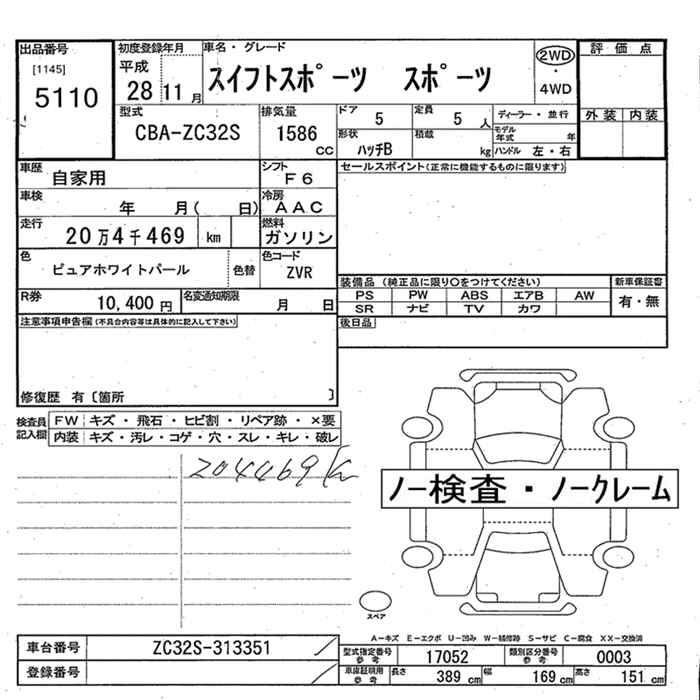 出品番号 初度登録年月 車名・グレード 評価点
[1145] 平成 スイフトスポーツ スポーツ 2WD
5110 28 11月 ・ 4WD
型式 排気量 ドア 定員 ディーラー・並行 外装 内装
CBA-ZC32S 1586 cc 5 5人 モデル年式 年
形状 積載
ハッチB kg ハンドル 左・右
車歴 自家用 シフト F6 セールスポイント(正常に機能するものに限ります)
車検 年 月( 日) 冷房 AAC
走行 20万4千469 km 燃料 ガソリン
色 ピュアホワイトパール 色替 色コード ZVR
装備品 (純正品に限り○をつけてください) 新車保証書
R券 10,400円 名変通知期限 月 日 PS PW ABS エアB AW 有・無
SR ナビ TV カワ
注意事項申告欄(不具合内容等は具体的に記入して下さい) 後日品
修復歴 有〔箇所 〕
検査員記入欄 FW キズ・飛石・ヒビ割・リペア跡・×要
内装 キズ・汚レ・コゲ・穴・スレ・キレ・破レ
204469km
ノー検査・ノークレーム
スペア
A-キズ E-エクボ U-凹み W-補修跡 S-サビ C-腐食 XX-交換済
車台番号 ZC32S-313351 型式指定番号参考 17052 類別区分番号参考 0003
登録番号 車庫証明用参考 長さ 389cm 幅 169cm 高さ 151cm